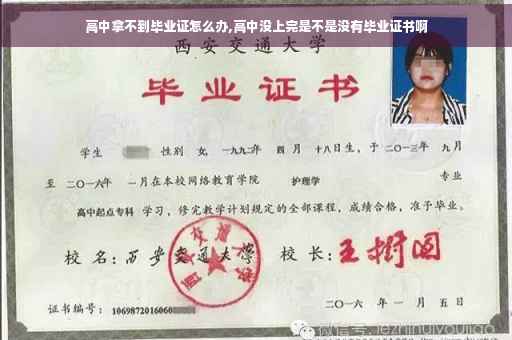 高中拿不到毕业证怎么办,高中没上完是不是没有毕业证书啊
西安交通大学
毕业证书
学生 性别 女, 一九九二年 四 月 十八日生, 于 二〇一三年 九月
至 二〇一六年 一月在本校网络教育学院 护理学 专业
高中起点专科 学习, 修完教学计划规定的全部课程, 成绩合格, 准予毕业。
校 名: 西安交通大学 校 长: 王树国
西安交通大学
证书编号: 1069872016060
二〇一六 年 一 月 五 日
微信号: jezhinuiyoujiao